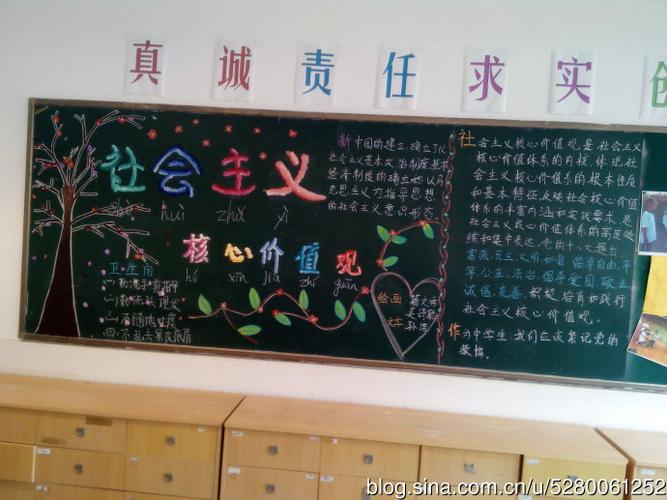 真 诚 责 任 求 实 创
社会主义
shè huì zhǔ yì
核心价值观
hé xīn jià zhí guān
新中国的建立,确立了以
社会主义基本政治制度、基本
经济制度的确立和以马
克思主义为指导思想
的社会主义意识形态
卫生角
一、勤洗手剪指甲
二、勤洗头理发
三、不随地吐痰
四、不乱丢果皮纸屑
绘画
社会主义核心价值观是社会主义
核心价值体系的内核,体现社
会主义核心价值体系的根本性质
和基本特征,反映社会核心价值
体系的丰富内涵和实践要求,是
社会主义核心价值体系的高度凝
练和集中表达。党的十八大提出,
富强、民主、文明、和谐,倡导自由、平
等、公正、法治,倡导爱国、敬业、
诚信、友善,积极培育和践行
社会主义核心价值观。
作为中学生,我们应该紧记党的
教悔。
blog.sina.com.cn/u/5280061252